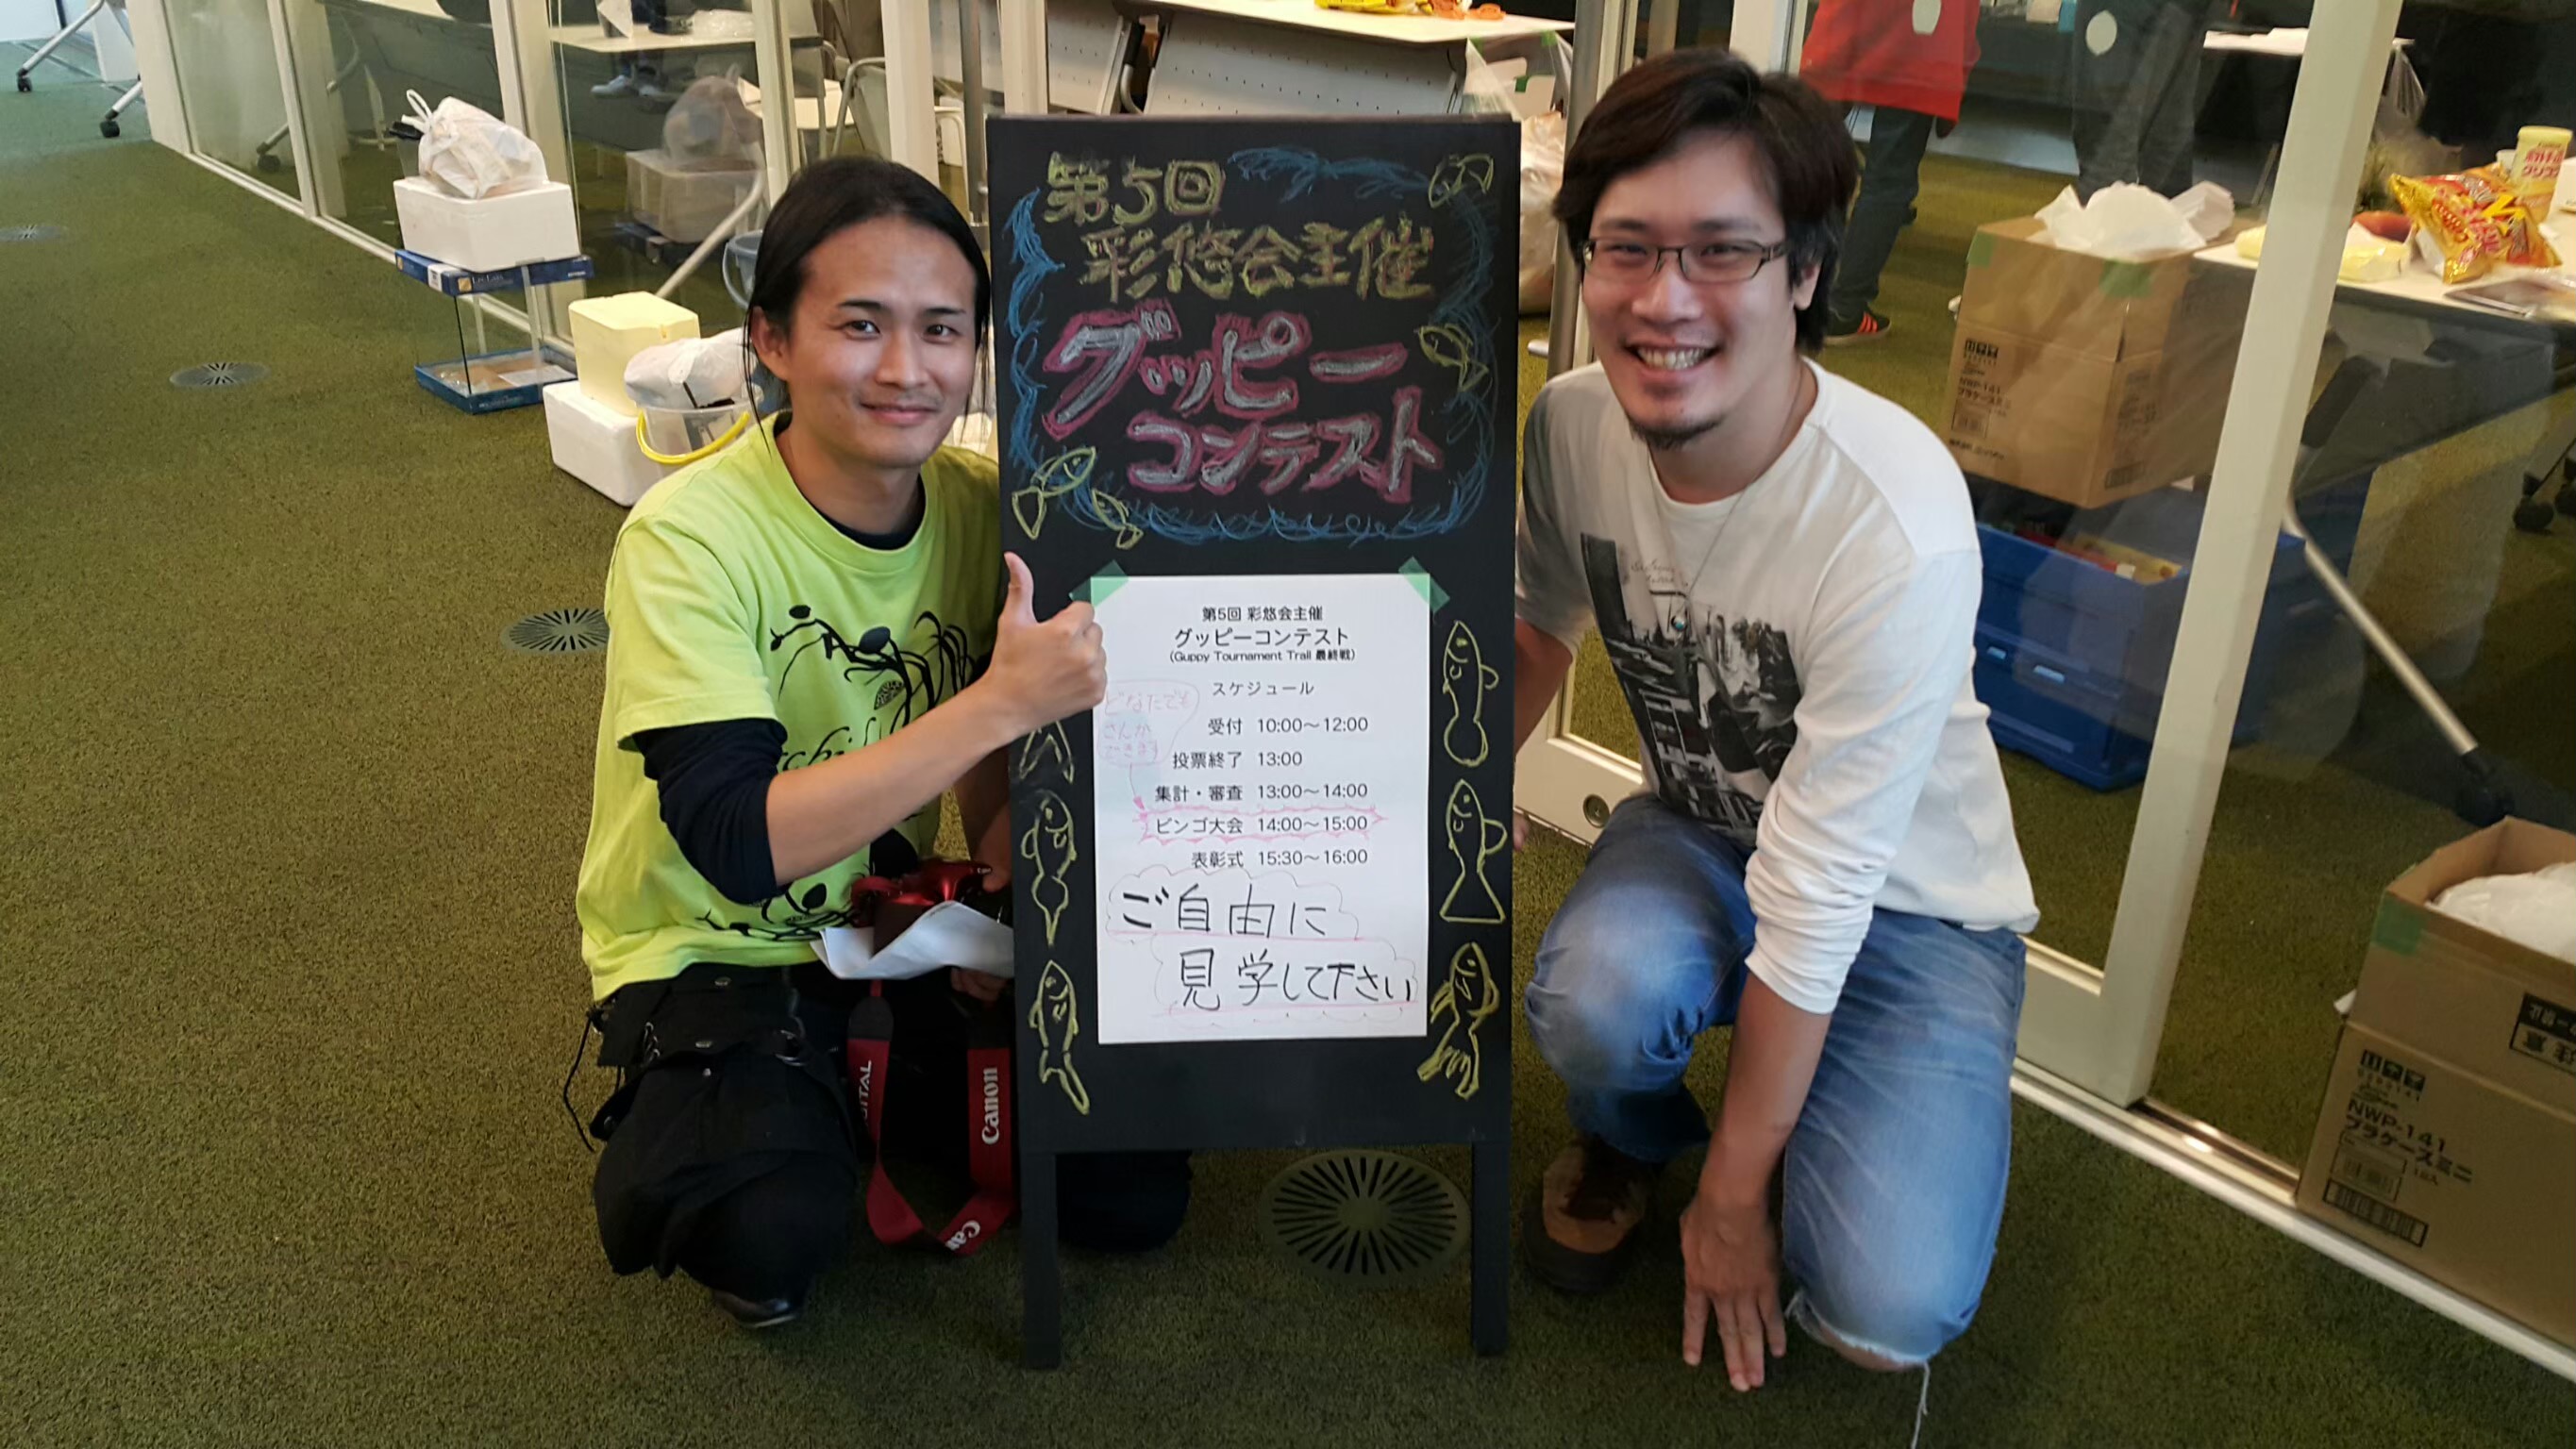 第5回
彩悠会主催
グッピー
コンテスト
第5回 彩悠会主催
グッピーコンテスト
(Guppy Tournament Trail 最終戦)
スケジュール
どなたでも
さんか
できます
受付 10:00～12:00
投票終了 13:00
集計・審査 13:00～14:00
ビンゴ大会 14:00～15:00
表彰式 15:30～16:00
ご自由に
見学して下さい
DIGITAL
Canon
NWP-141
プラケースミニ
NWP-141
プラケースミニ